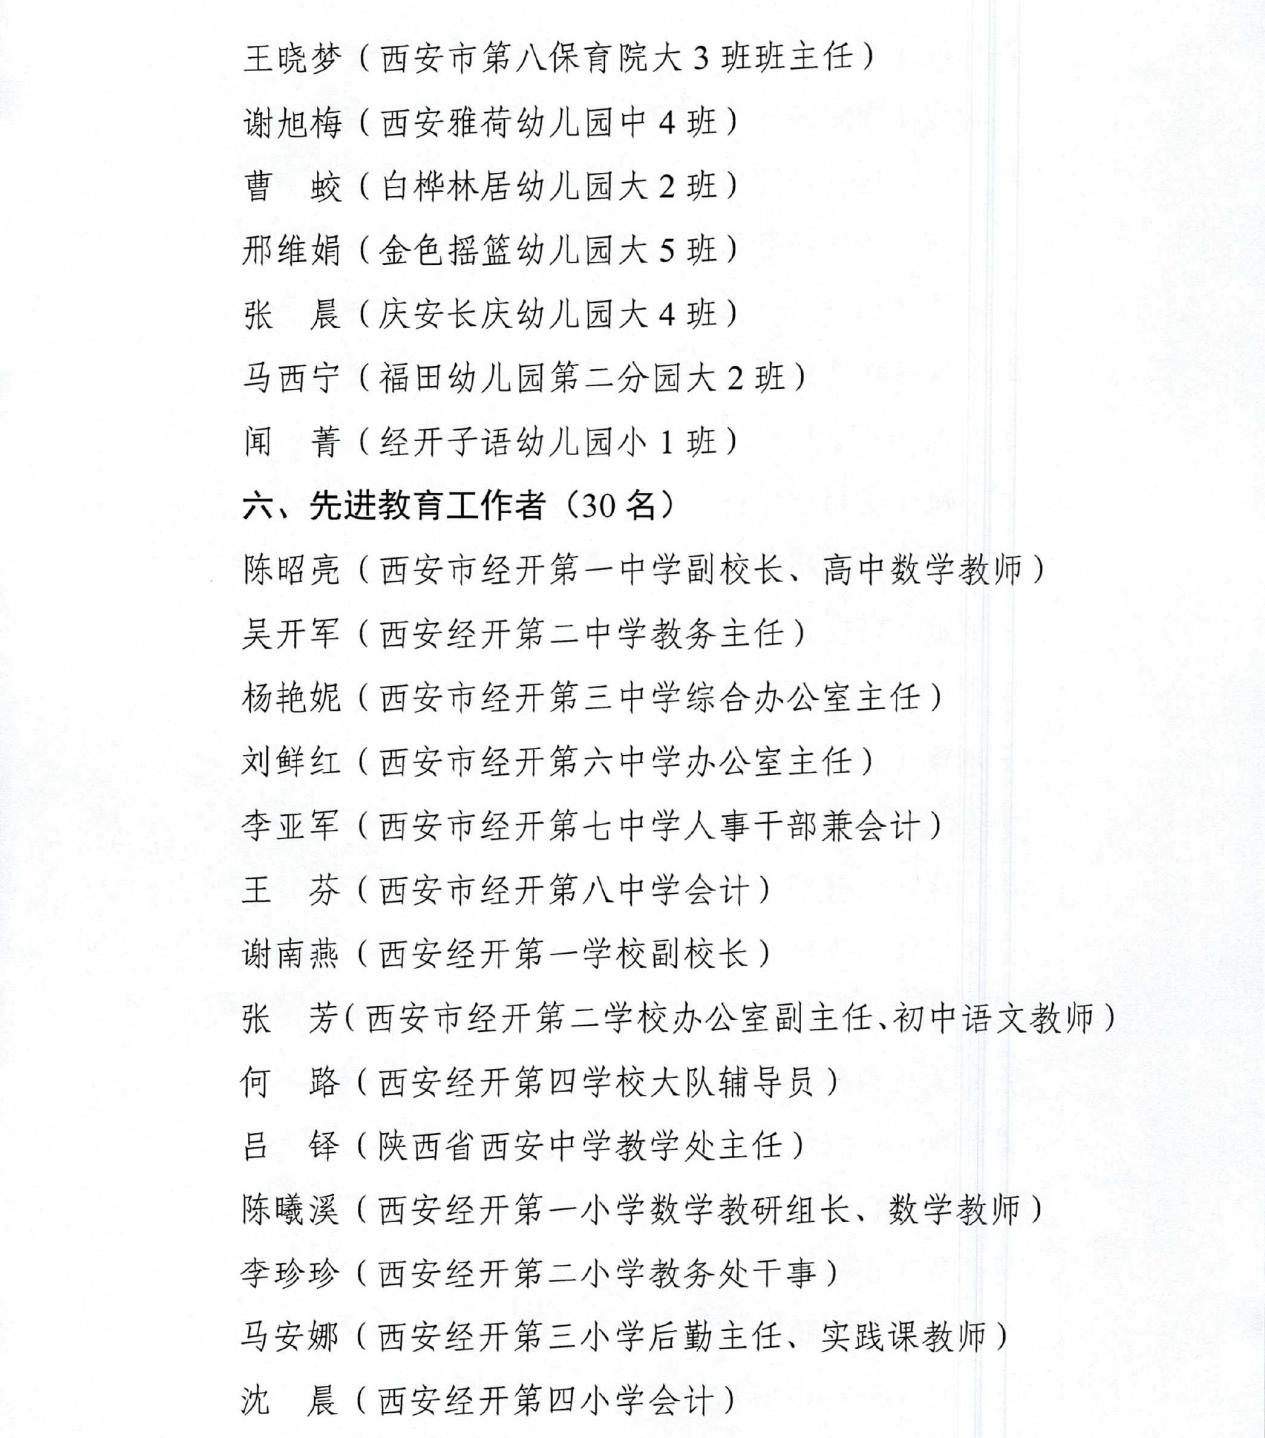 王晓梦（西安市第八保育院大 3 班班主任）
谢旭梅（西安雅荷幼儿园中 4 班）
曹　蛟（白桦林居幼儿园大 2 班）
邢维娟（金色摇篮幼儿园大 5 班）
张　晨（庆安长庆幼儿园大 4 班）
马西宁（福田幼儿园第二分园大 2 班）
闻　菁（经开子语幼儿园小 1 班）
六、先进教育工作者（30 名）
陈昭亮（西安市经开第一中学副校长、高中数学教师）
吴开军（西安经开第二中学教务主任）
杨艳妮（西安市经开第三中学综合办公室主任）
刘鲜红（西安市经开第六中学办公室主任）
李亚军（西安市经开第七中学人事干部兼会计）
王　芬（西安市经开第八中学会计）
谢南燕（西安经开第一学校副校长）
张　芳（西安市经开第二学校办公室副主任、初中语文教师）
何　路（西安经开第四学校大队辅导员）
吕　铎（陕西省西安中学教学处主任）
陈曦溪（西安经开第一小学数学教研组长、数学教师）
李珍珍（西安经开第二小学教务处干事）
马安娜（西安经开第三小学后勤主任、实践课教师）
沈　晨（西安经开第四小学会计）